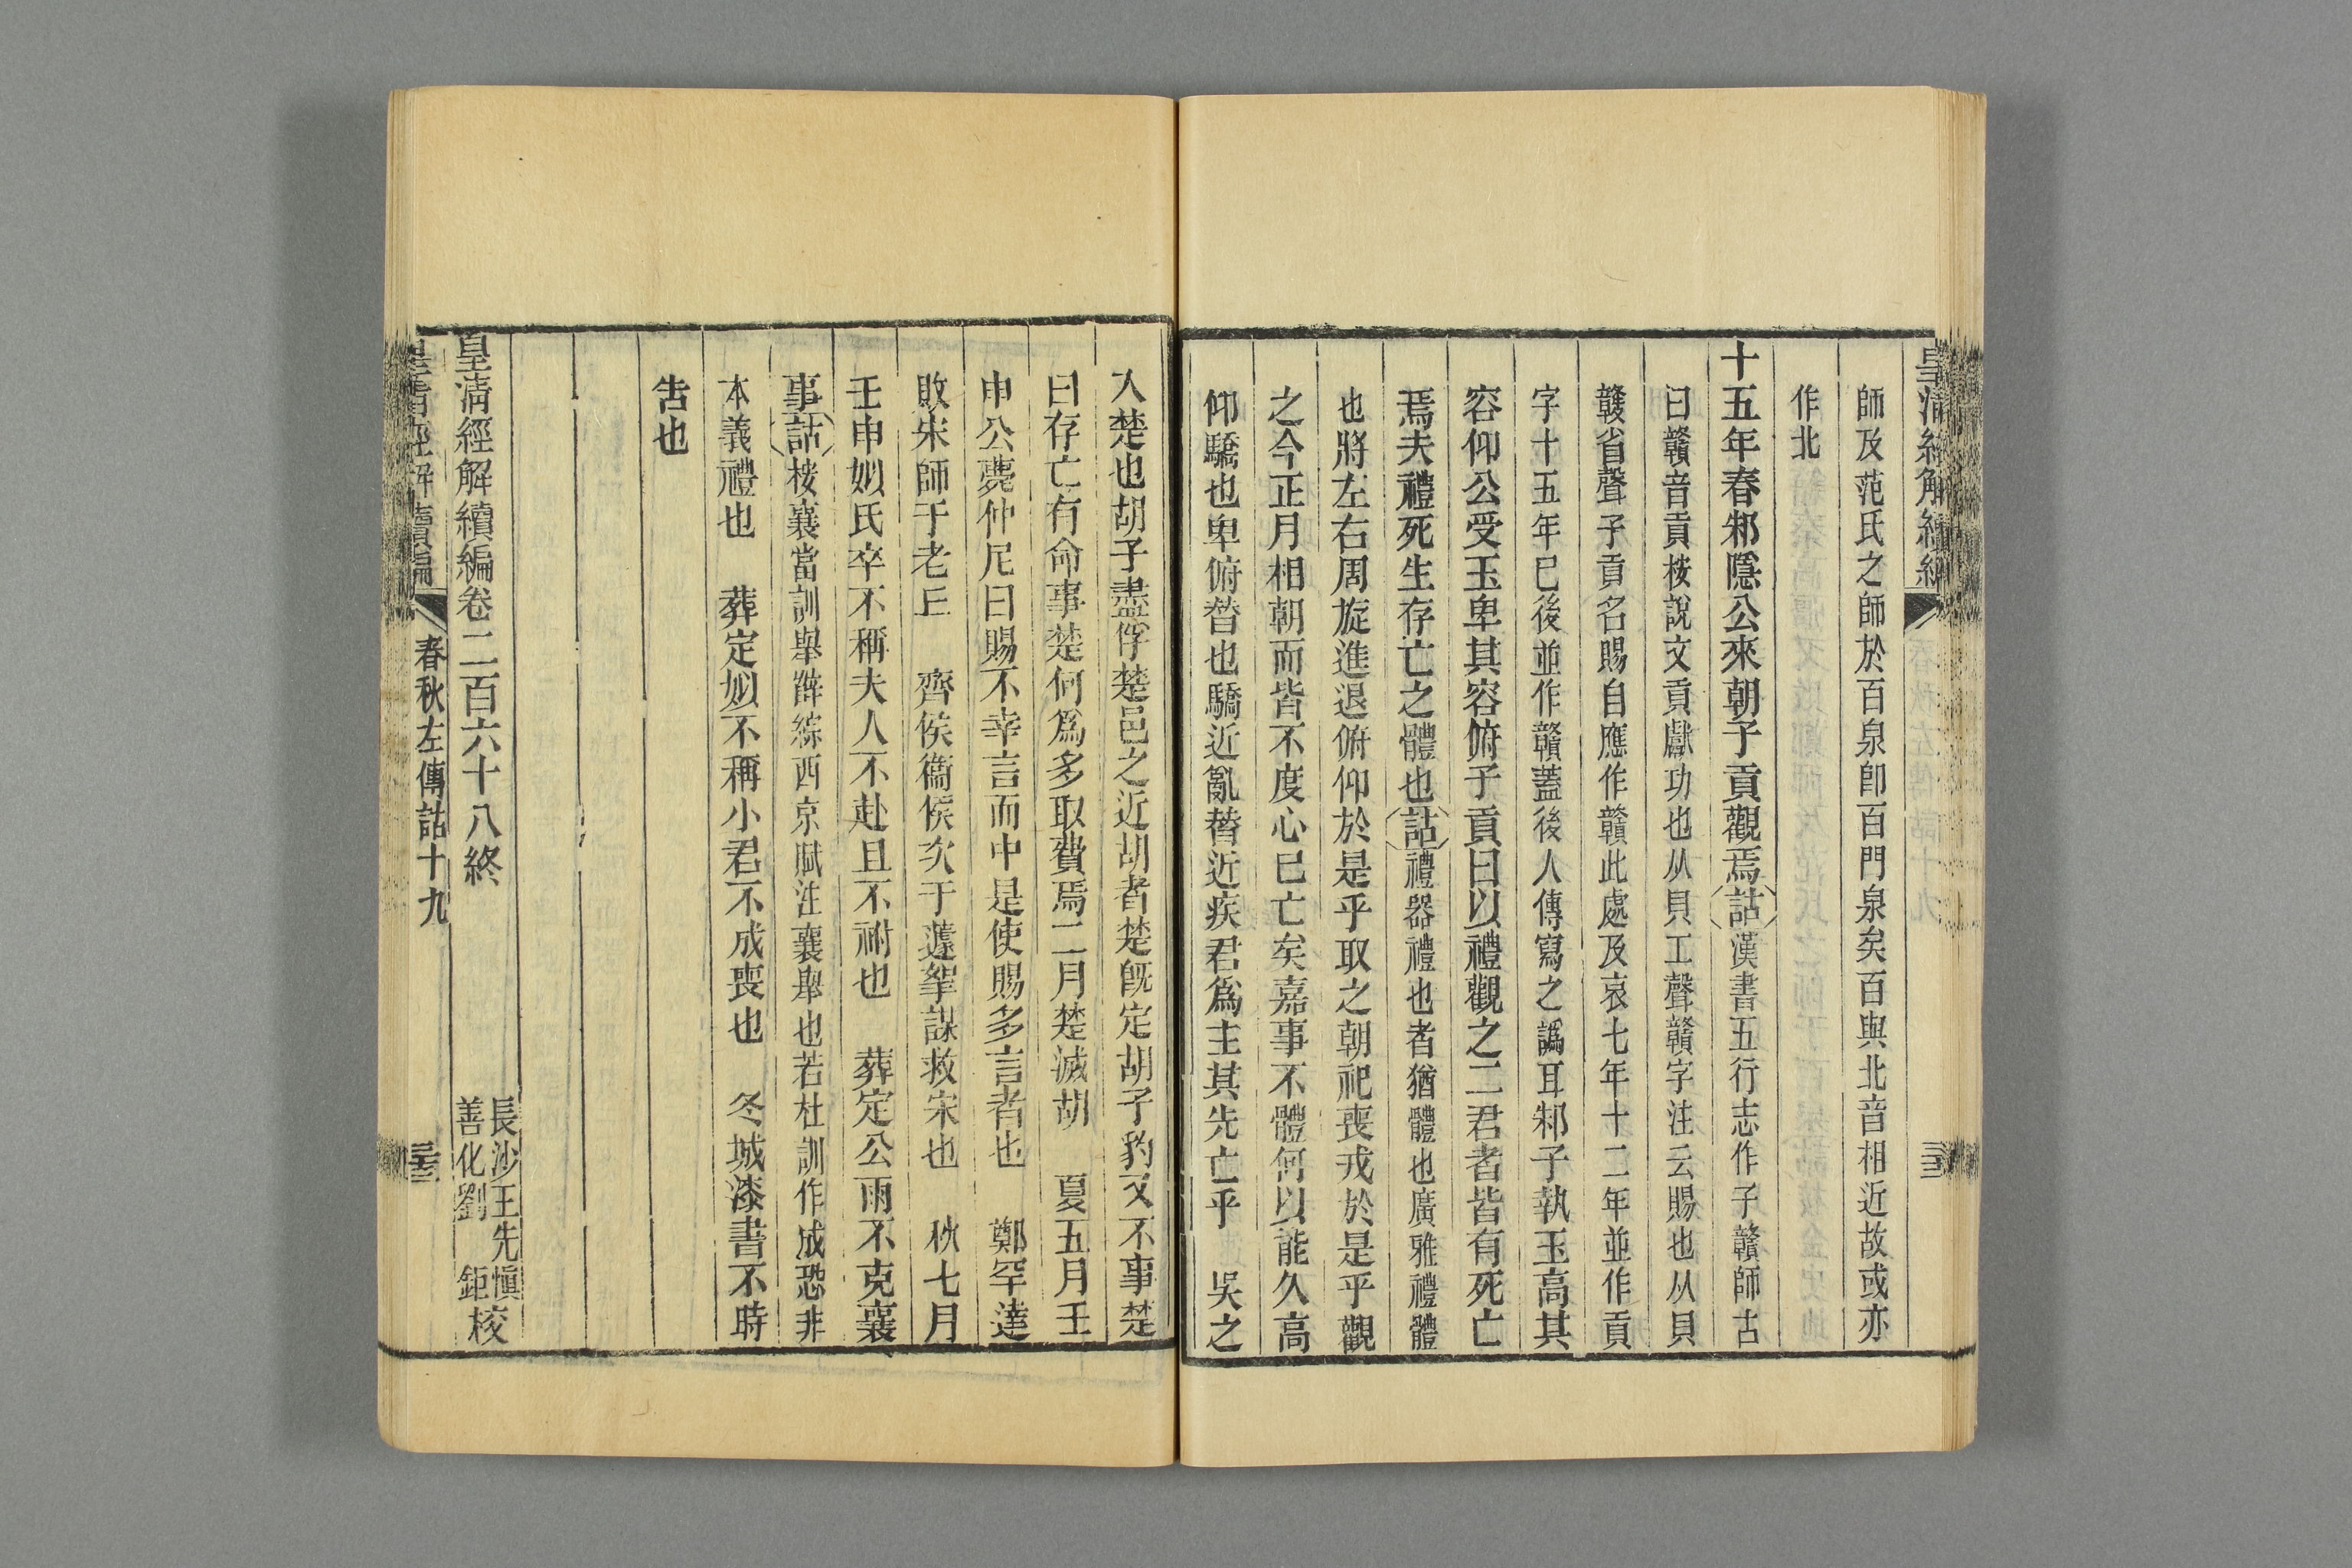 皇清經解續編
師及范氏之師於百泉卽百門泉矣百與北音相近故或亦
作北
十五年春邾隱公來朝子貢觀焉詁漢書五行志作子贛師古
曰贛音貢桉說文貢獻功也从貝工聲贛字注云賜也从貝
竷省聲子貢名賜自應作贛此處及哀七年十二年並作貢
字十五年已後並作贛蓋後人傳寫之譌耳邾子執玉高其
容仰公受玉卑其容俯子貢曰以禮觀之二君者皆有死亡
焉夫禮死生存亡之體也詁禮器禮也者猶體也廣雅禮體
也將左右周旋進退俯仰於是乎取之朝祀喪戎於是乎觀
之今正月相朝而皆不度心已亡矣嘉事不體何以能久高
仰驕也卑俯替也驕近亂替近疾君爲主其先亡乎　吳之
入楚也胡子盡俘楚邑之近胡者楚旣定胡子豹又不事楚
曰存亡有命事楚何爲多取費焉二月楚滅胡　夏五月壬
申公薨仲尼曰賜不幸言而中是使賜多言者也　鄭罕達
敗宋師于老丘　齊侯衞侯次于蘧挐謀救宋也　秋七月
壬申姒氏卒不稱夫人不赴且不祔也　葬定公雨不克襄
事詁桉襄當訓舉薛綜西京賦注襄舉也若杜訓作成恐非
本義禮也　葬定姒不稱小君不成喪也　冬城漆書不時
告也
皇清經解續編卷二百六十八終
長沙王先愼
善化劉　鉅校
皇清經解續編
春秋左傳詁十九